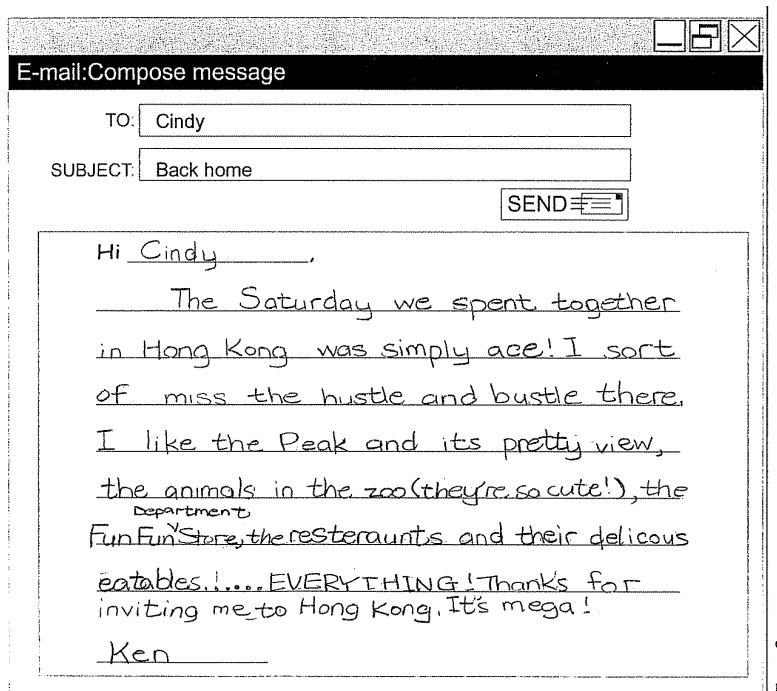 E-mail:Compose message
TO: Cindy
SUBJECT: Back home
SEND
Hi Cindy,
The Saturday we spent together
in Hong Kong was simply ace! I sort
of miss the hustle and bustle there.
I like the Peak and its pretty view,
the animals in the zoo (they're so cute!), the
Department
Fun Fun Store, the resteraunts and their delicous
eatables.!.... EVERYTHING! Thanks for
inviting me to Hong Kong. It's mega!
Ken